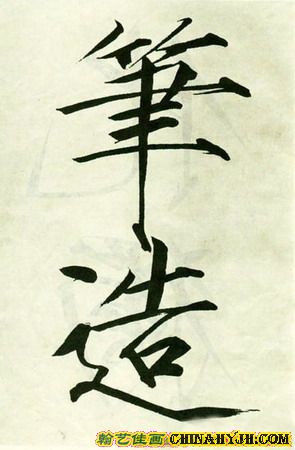 筆
造
翰艺佳画 CHINAHYJH.COM